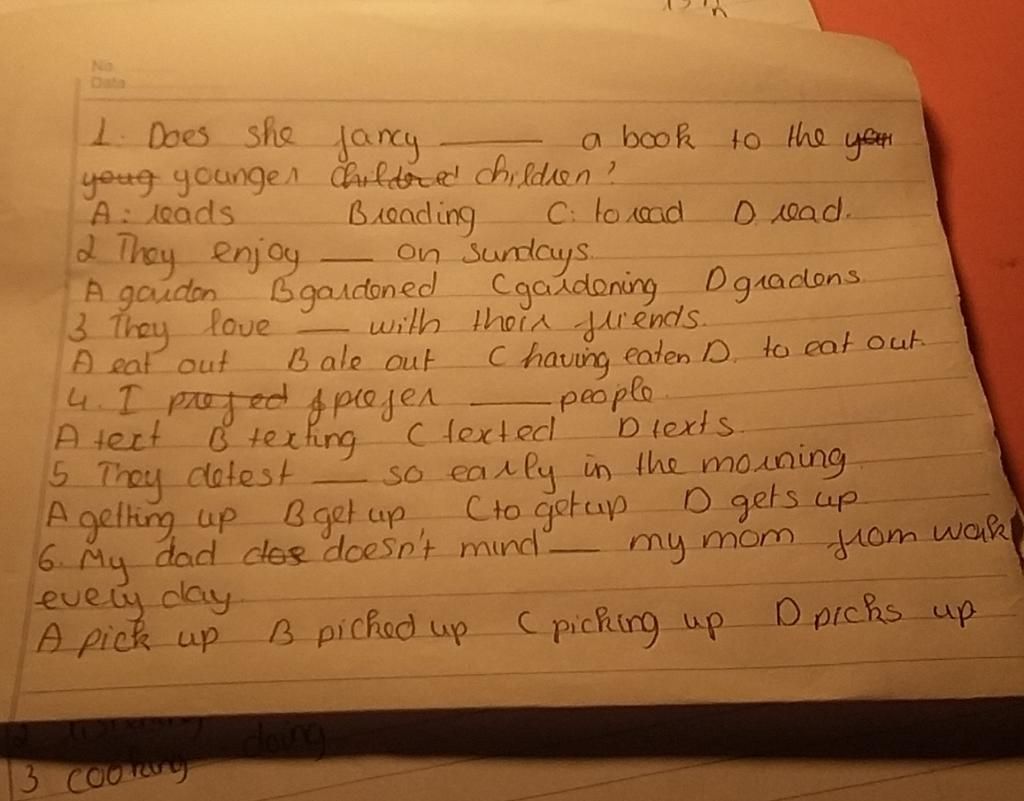 No.
Date
1. Does she fancy ___ a book to the your
young younger childored children?
A: reads B reading C: to read D. read.
2 They enjoy ___ on sundays.
A garden B gardened C gardening D gradens
3 They love ___ with their friends.
A eat out B ate out C having eaten D. to eat out.
4. I prefed prefer ___ people.
A text B texting C texted D texts.
5 They detest ___ so early in the morning.
A getting up B get up, C to get up D gets up
6. My dad does doesn't mind ___ my mom from work
every day.
A pick up B picked up C picking up D picks up
3 cooking doing